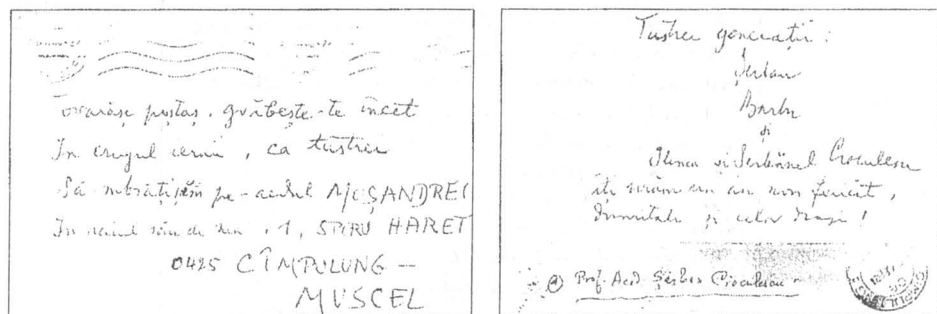 Tovarășe poștaș, grăbește-te încet
În crugul iernii, ca tustrei
Să-mbrățișăm pe-acelul MOȘANDREI
În raiul său de , 1, SPIRU HARET
0425 CÎMPULUNG –
MUSCEL
Tustrei generații:
Șerban
Barbu
și
Ilinca și Șerbănel Cioculescu
îți urăm un an nou fericit,
Dumitale și celor dragi!
Prof. Acad. Șerban Cioculescu